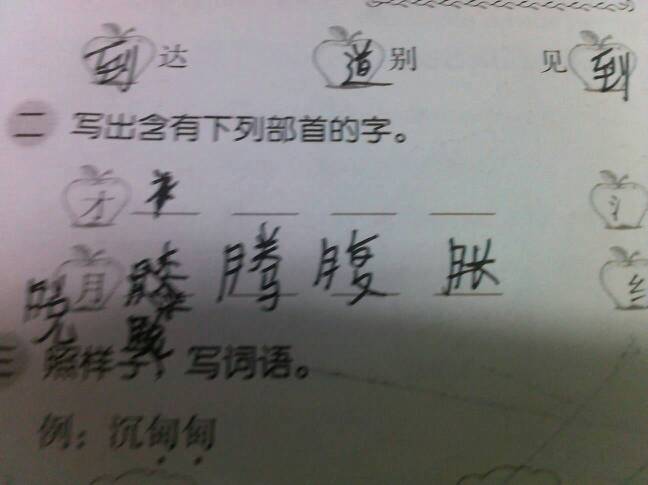 到达 道别 见到
二 写出含有下列部首的字。
才
月 膝 腾 腹 胀
三 照样子，写词语。
例：沉甸甸